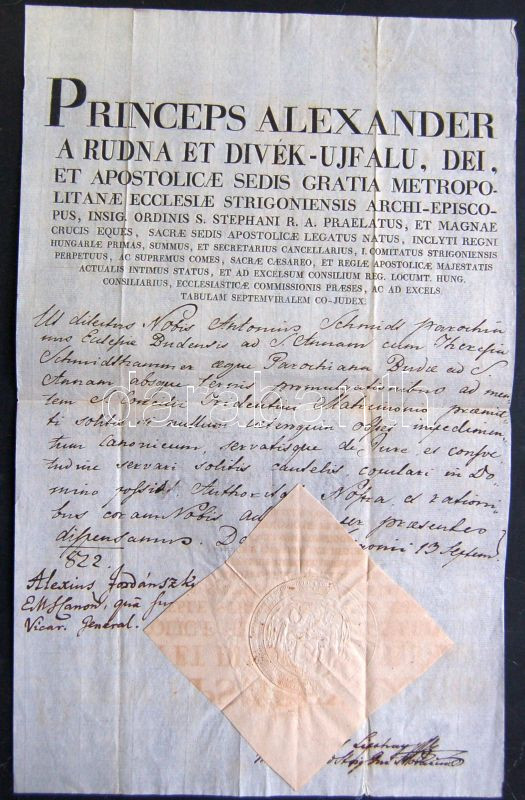 PRINCEPS ALEXANDER
A RUDNA ET DIVÉK-UJFALU, DEI,
ET APOSTOLICÆ SEDIS GRATIA METROPO-
LITANÆ ECCLESIÆ STRIGONIENSIS ARCHI-EPISCO-
PUS, INSIG. ORDINIS S. STEPHANI R. A. PRAELATUS, ET MAGNAE
CRUCIS EQUES, SACRÆ SEDIS APOSTOLICÆ LEGATUS NATUS, INCLYTI REGNI
HUNGARIÆ PRIMAS, SUMMUS, ET SECRETARIUS CANCELLARIUS, I. COMITATUS STRIGONIENSIS
PERPETUUS, AC SUPREMUS COMES, SACRÆ CÆSAREO, ET REGIÆ APOSTOLICÆ MAJESTATIS
ACTUALIS INTIMUS STATUS, ET AD EXCELSUM CONSILIUM REG. LOCUMT. HUNG.
CONSILIARIUS, ECCLESIASTICÆ COMMISSIONIS PRÆSES, AC AD EXCELS.
TABULAM SEPTEMVIRALEM CO-JUDEX.
Ut dilectus Nobis Antonius Schmidt parochia
nus Ecclesiæ Budensis ad S. Annam cum Theresia
Schmidthammer æque Parochiana Budæ ad S.
Annam absque ternis promulgationibus ad men
tem S. Concilii Tridentini Matrimonio præmit
ti solitis, si nullum alterquin obstet impedimen
tum canonicum, servatisque de Jure, et consve
tudine servari solitis cautelis, copulari in Do
mino possit; Authoritate Nostra ex rationi
bus coram Nobis ad præsentes
dispensamus. 13 Septem
822.
Alexius Jordánszk
E. M. S. Canon, quâ
Vicar. General.
darabanth